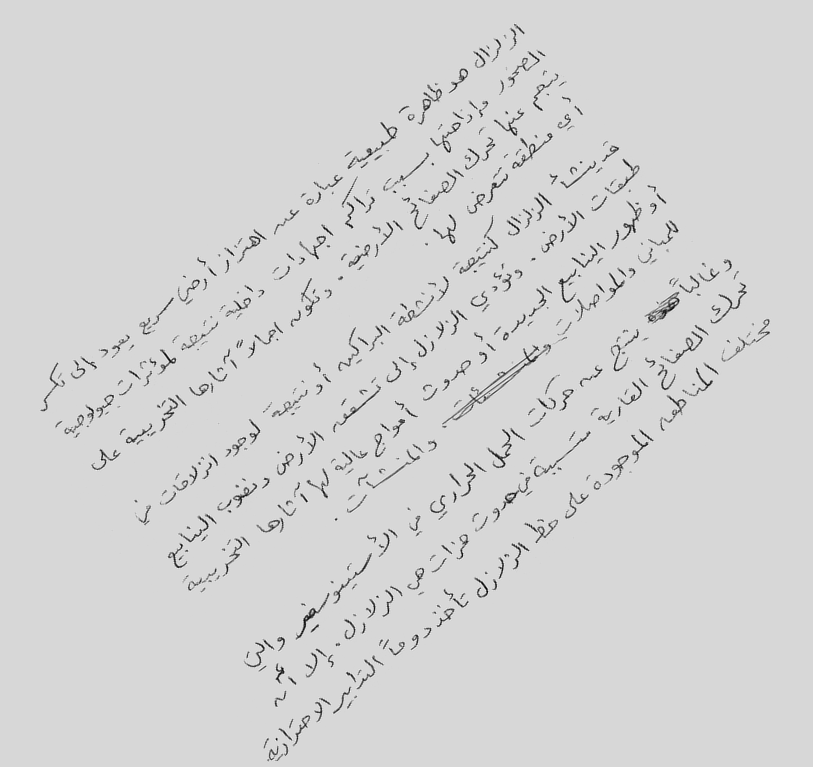 الزلزال هو ظاهرة طبيعية عبارة عن اهتزاز أرضي سريع يعود إلى تكسر
الصخور وإزاحتها بسبب تراكم اجهادات داخلية نتيجة لمؤثرات جيولوجية
ينجم عنها تحرك الصفائح الأرضية. وتكون اجمالاً آثارها التخريبية على
أي منطقة تتعرض لها.
قد ينشأ الزلزال كنتيجة لأنشطة البراكين أو نتيجة لوجود انزلاقات في
طبقات الأرض. وتؤدي الزلازل إلى تشقق الأرض ونضوب الينابيع
أو ظهور الينابيع الجديدة أو حدوث أمواج عالية لها آثارها التخريبية
للمباني والمواصلات والمنشآت.
وغالباً ينتج عن حركات الحمل الحراري في الأستينوسفير والتي
تحرك الصفائح القارية مسببة في حدوث هزات هي الزلازل. إلا أنّه
مختلف المناطق الموجودة على خط الزلازل تأخذ دوماً التدابير الاحترازية